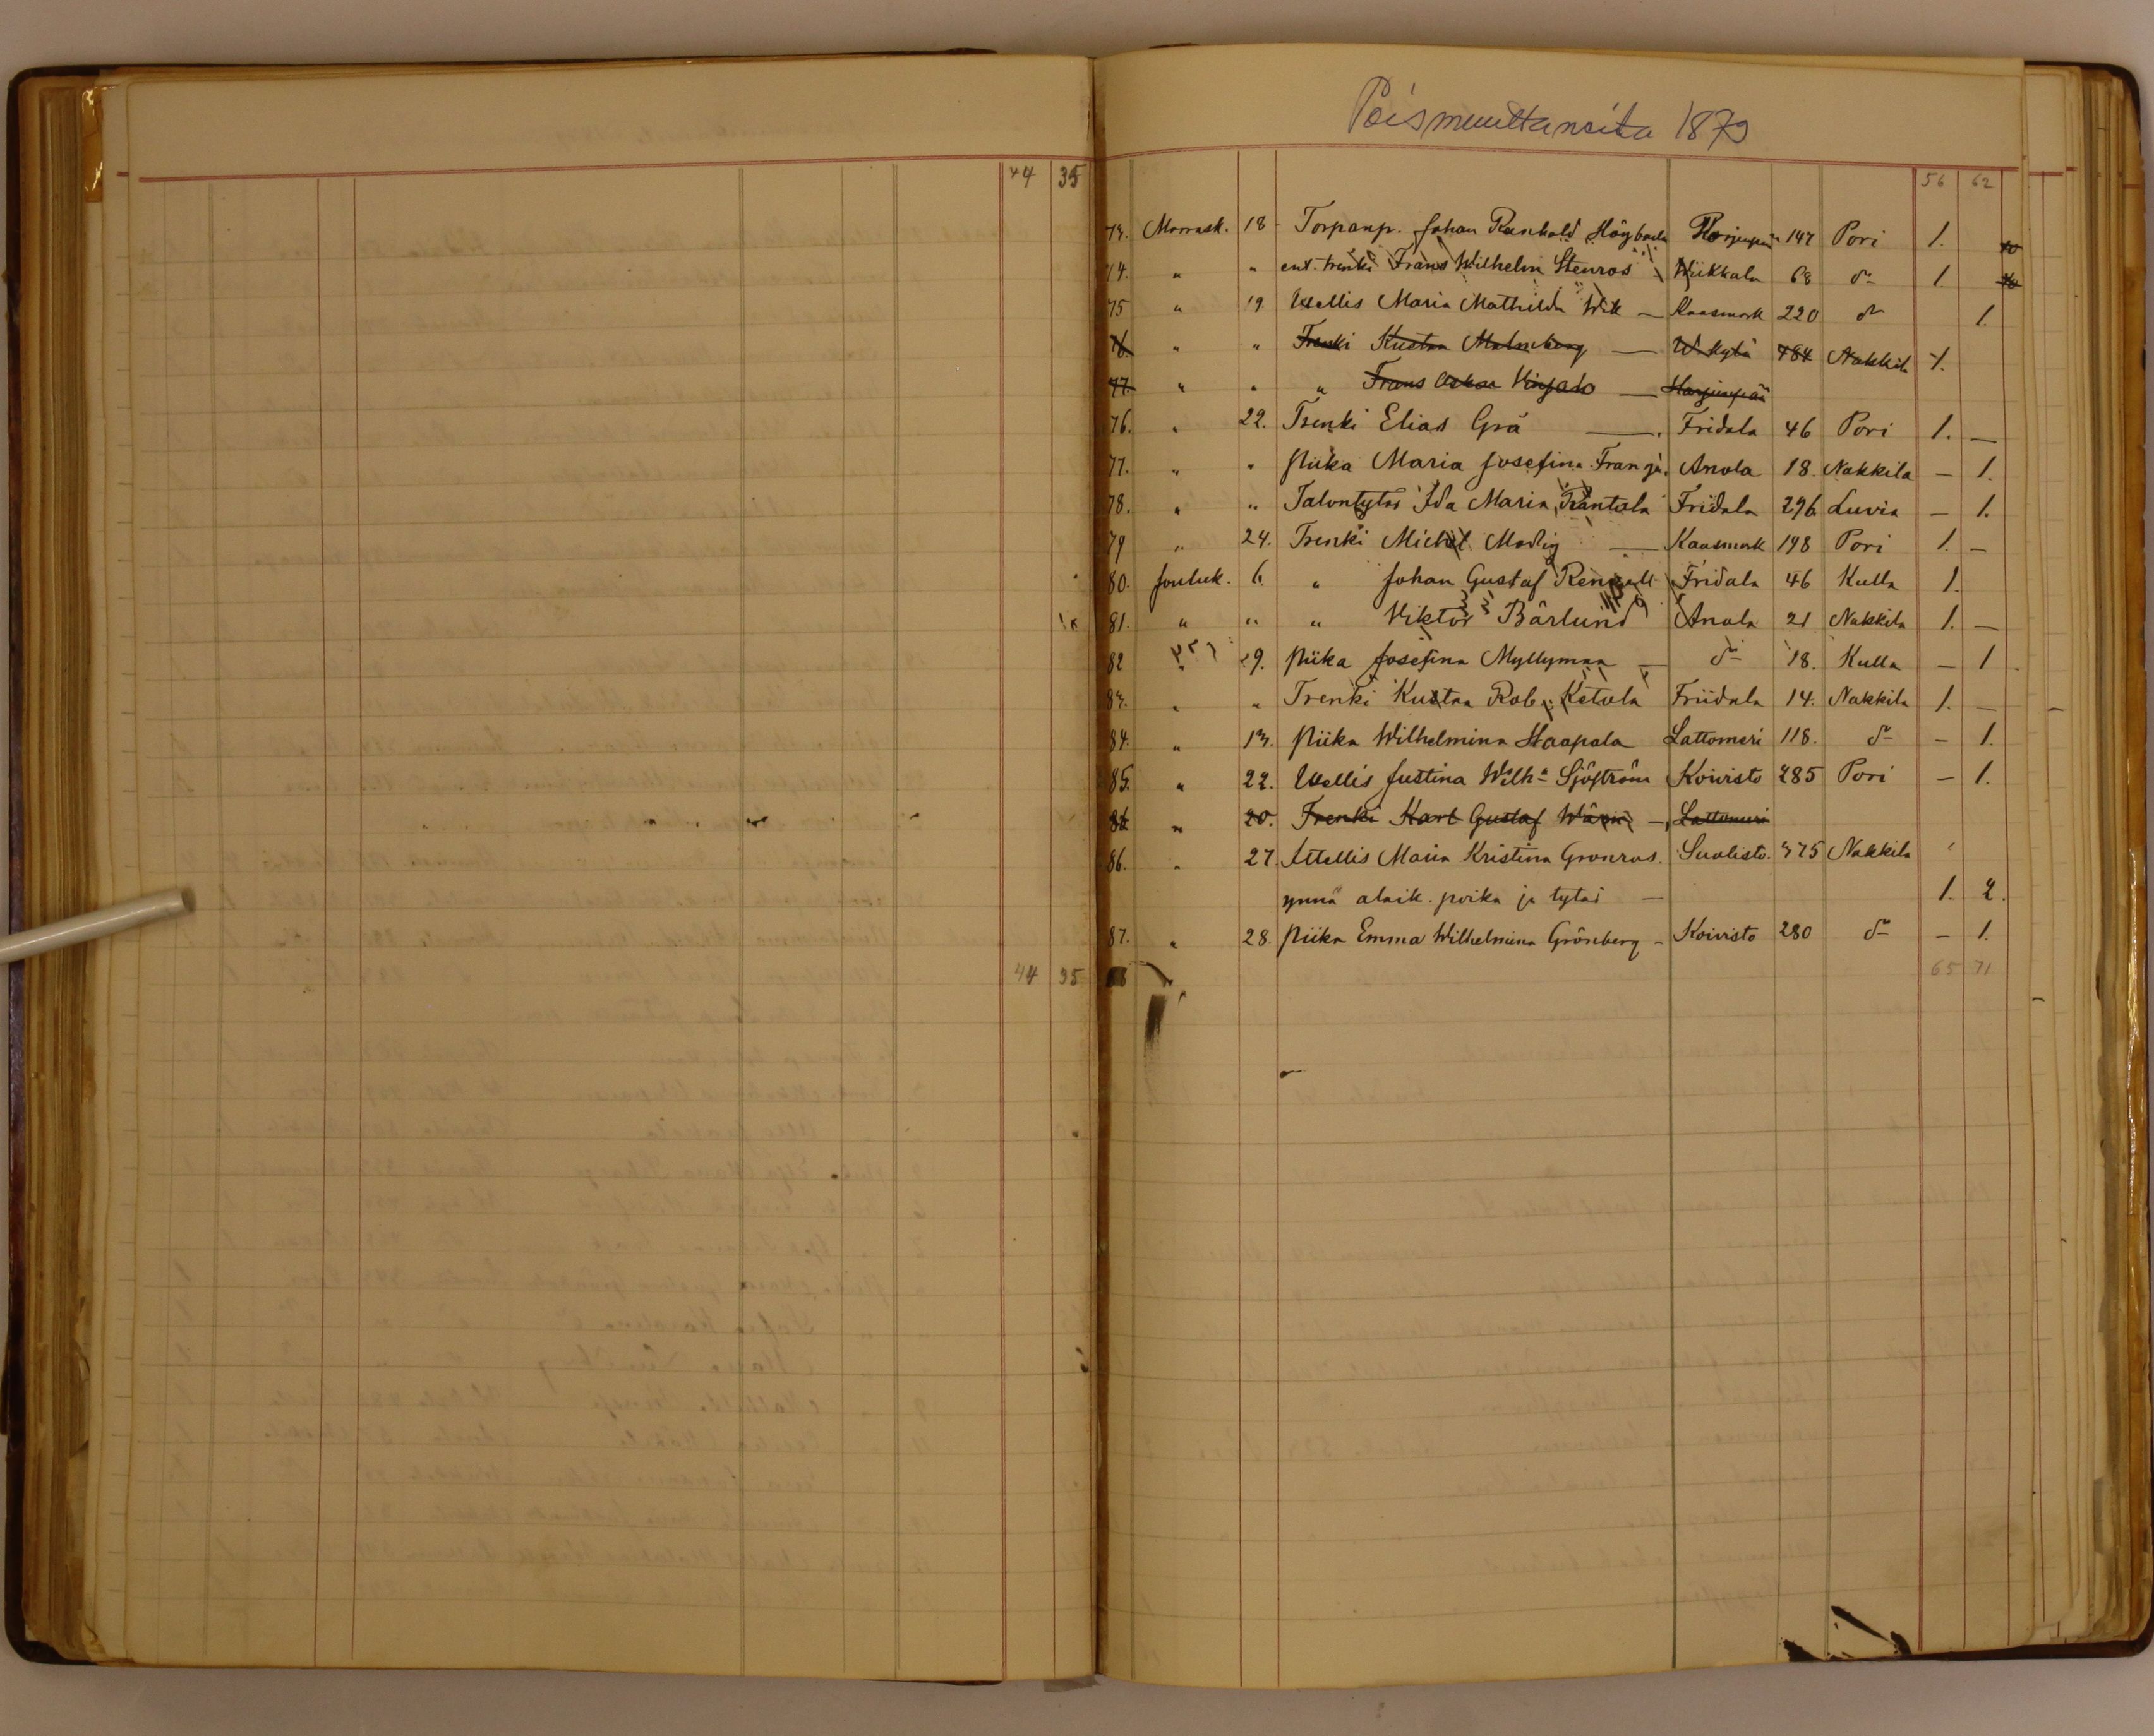 44 35
Poismuuttaneita 1879
56 62
73. Marrask. 18 Torpanp. Johan Reinhold Högbacka 147 Pori 1.
74. " " ent. trenki Frans Wilhelm Stenros Wiikkala 68 d:o 1
75 " 19 Itsellis Maria Mathilda Wik — Kaasmark 220 d:o 1.
76. " " Trenki Kustaa Malmberg — W. Kylä 484 Nakkila 1.
77. " " " Frans Oskar — Harjunpää
76. " 22. Trenki Elias Grä — Fridala 46 Pori 1. —
77. " " Piika Maria Josefina Fransj. Anola 18. Nakkila — 1.
78. " " Talontytär Ida Maria Trantala Fridala 296 Luvia — 1.
79 " 24. Trenki Michel Modig — Kaasmark 198 Pori 1. —
80. Jouluk. 6. " Johan Gustaf Renvall Fridala 46 Kulla 1.
81. " " " Viktor Bärlund Anola 21 Nakkila 1. —
82 " 9. Piika Josefina Myllymaa — d:o 18. Kulla — 1
83. " " Trenki Kustaa Rob. Ketola Friidala 14. Nakkila 1. —
84. " 13. Piika Wilhelmina Haapala Lattomeri 118. d:o — 1.
85. " 22. Itsellis Justina Wilh:a Sjöström Koivisto 285 Pori — 1.
86 " 20. Trenki Karl Gustaf — Lattomeri
86. " 27. Itsellis Maria Kristina Gronros. Suolisto. 375 Nakkila
ynnä alaik. poika ja tytär — 1. 2.
87. " 28. Piika Emma Wilhelmina Grönberg — Koivisto 280 d:o — 1.
44 35
65 71